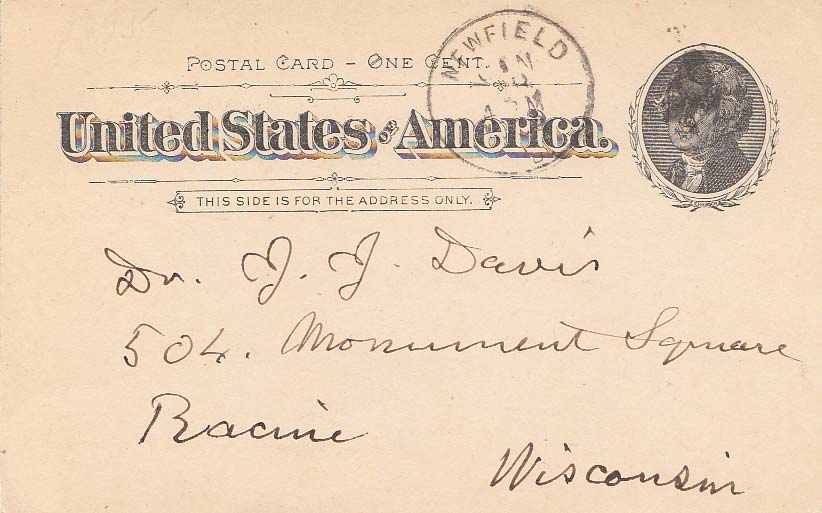 POSTAL CARD - ONE CENT.
NEWFIELD
JAN
United States OF America.
THIS SIDE IS FOR THE ADDRESS ONLY.
Dr. J. J. Davis
504. Monument Square
Racine
Wisconsin